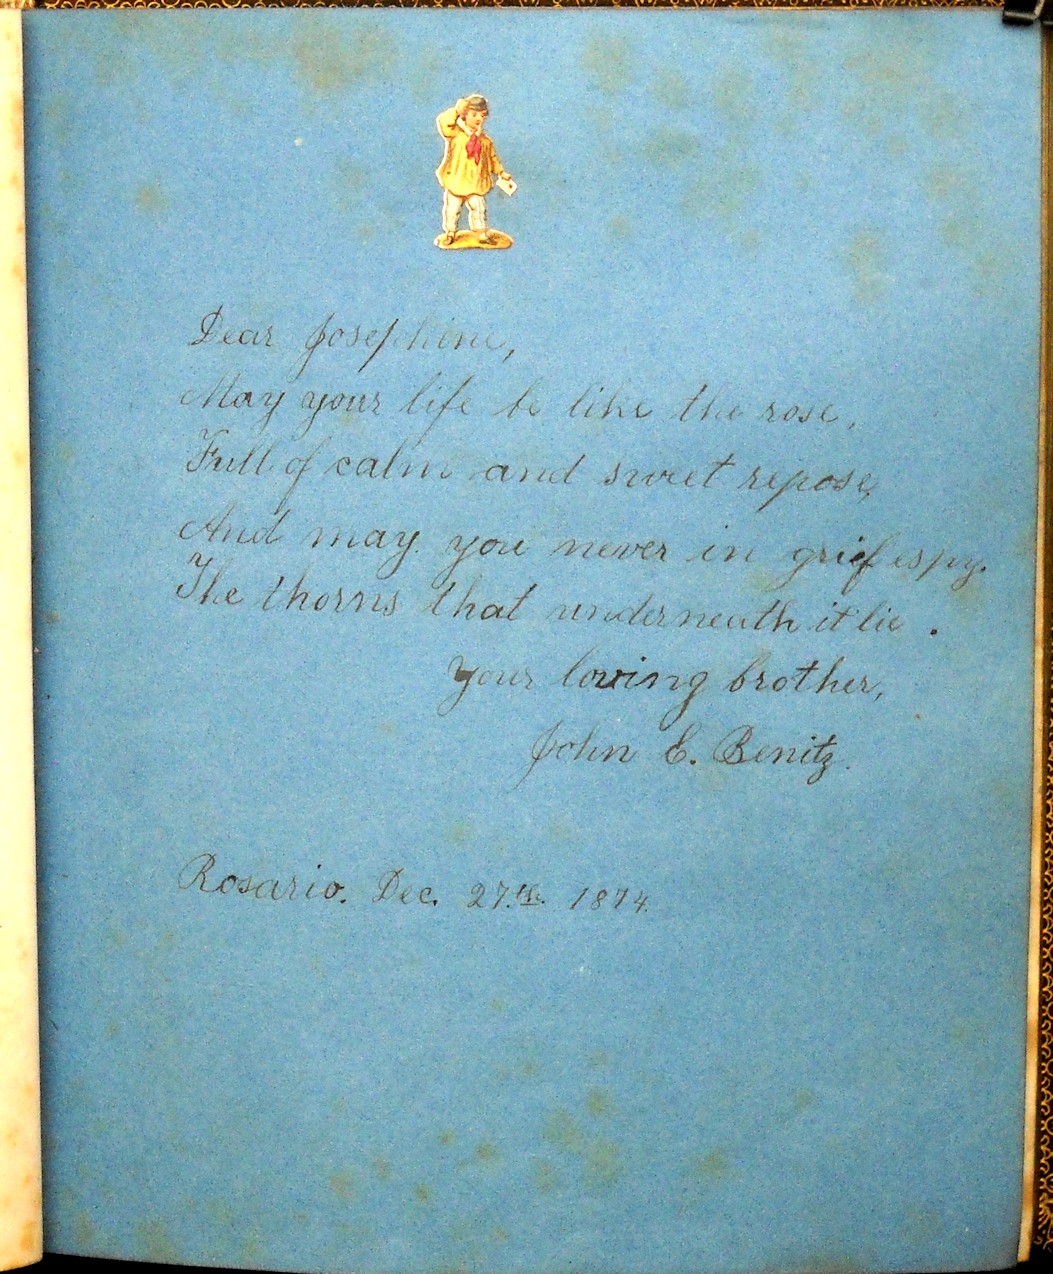 Dear Josephine,
May your life be like the rose,
Full of calm and sweet repose,
And may you never in grief espy.
The thorns that underneath it lie.
Your loving brother,
John E. Benitz.
Rosario. Dec. 27.th 1874.